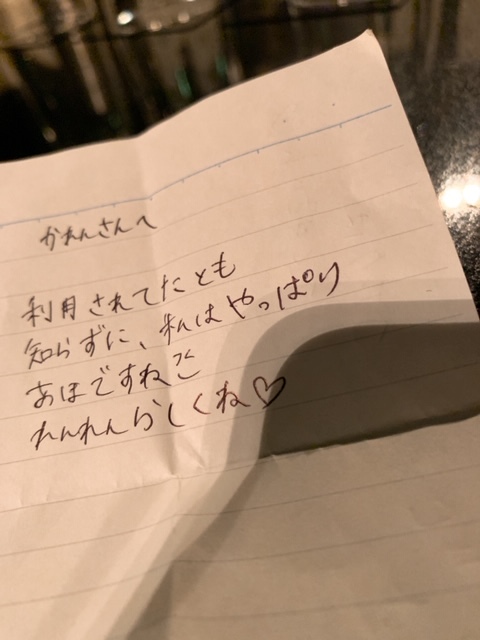 かれんさんへ
利用されてたとも
知らずに、私はやっぱり
あほですね
れんれんらしくね♡